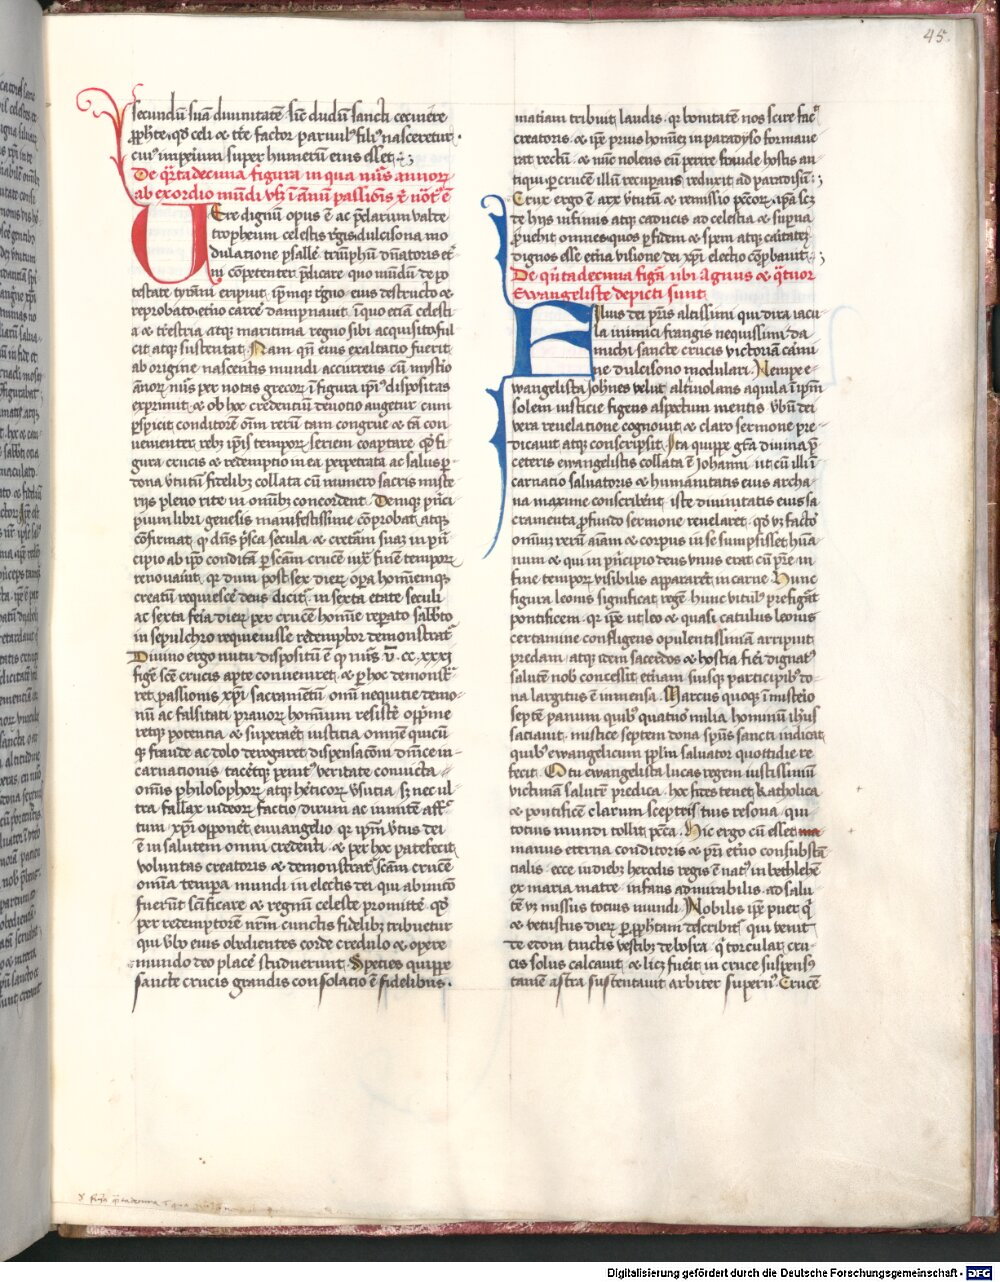 45.
secundū suā diuinitatē sic dudū sancti cecinere
ꝓphēte, qđ celi & tre factor paruulꝰ filiꝰ nasceretur.
cuiꝰ impeium super humerū eius esset.
De qrtadecima figura in qua nūs annorꝫ
ab exordio mūdi vsqꝫ ī annū passiōis xp̄i nōtꝰ ē
Uere dignū opus ē ac p̄clarum valre
tropheum celestis rēgis dulcisona mo
dulatione psallē triūphū dn̄atoris et̄
ni cōpetenter p̄dicare quo mūdū de po
testate tyrāni eripuit, ipmqꝫ rgno eius destructo &
reprobato etno carce dampnauit, ī quo etiā celesti
a & trestria atqꝫ maritima regno sibi acquisito ful
cit atqꝫ sustentat. Nam qn̄ eius exaltatio fuerit
ab origine nascentis mundi accurrens cū mystio
ānorꝫ nūs per notas grecorꝫ ī figura ipiꝰ dispositas
exprimit, & ob hoc credentiū deuotio augetur cum
pspicit conditorē oīm rerū tam congrue & tā con
uenienter rebꝫ ipis temporꝫ seriem coaptare, qđ fi
gura crucis & redemptio in ea perpetrata ac salus p
dona v̄tutū fidelibꝫ collata cū numero sacris miste
rijs pleno rite in oībꝫ concordent. Deniqꝫ p̄nci
pium libri genesis manifestissime cōprobat, atqꝫ
cōfirmat, qꝫ dn̄s p̄sca secula & cretām suā in pn̄
cipio ab ipo conditā p scām crucē iux̄ finē temporꝫ
renouauit, qꝫ dum post sex dierꝫ opa hominēqꝫ
creatū requiescē deus dicit, in sexta etate seculi
ac sexta feīa dierꝫ per crucē homīe repato sabbto
in sepulchro requieuisse redemptor demonstrat
Diuino ergo nutu dispositū ē qꝫ nūs v. cc. xxxi
figē scē crucis apte conueniret, & p hoc demonst
ret passionis xp̄i sacramētū omni nequitie demo
nū ac falsitati prauorꝫ hominum resistē opprīme
retqꝫ potencia & superaret iusticia omnē quicū
qꝫ fraude ac dolo derogaret dispensacōni dnīce in
carnationis, tacētqꝫ penitꝰ veritate conuicta
omīs philosophorꝫ atqꝫ hēticorꝫ v̄sutia, sꝫ nec ul
tra fallax iudeorꝫ factio dirum ac inmitē aff
tum xp̄i opponet euuangelio, qꝫ ipm v̄tus dei
ē in salutem omni credenti, & per hoc patefecit
voluntas creatoris & demonstrat scām crucē
omīa tempora mundi in electis dei qui ab initio
fuerūt scīficare & regnū celeste promitte, qđ
per redemptorē nrm cunctis fidelibꝫ tribuetur
qui v̄bo eius obedientes corde credulo & opere
mundo deo placē studuerunt. Species quippe
sancte crucis grandis consolatio ē fidelibus.
matiam tribuit laudis, qꝫ bonitatē nos scire fac
creatoris, & ipē prius hominē in paradyso formaue
rat rectū, & nūc nolens eū perire fraude hostis an
tiqui p crucē illū recuperās reduxit ad paradisū:
Crux ergo ē arx v̄tutū & remissio pc̄corꝫ, ipa scꝫ
te hijs infimis atqꝫ caducis ad celestia & supna
puehit omnes quos p fidem & spem atqꝫ caritatē
dignos esse etna visione dei xp̄i electio cōpbauit.
De quītadecima figā ubi agnus & qtuor
Ewangeliste depicti sunt
Filius dei pris altissimi qui dira iacu
la inimici frangis nequissimi da
michi sancte crucis victoriā carmi
ne dulcisono modulari. Nempe e
wangelista Johēs velut altiuolans aquila ī ipm
solem iusticie figens aspectum mentis v̄bū dei
vera reuelatione cognouit & claro sermone pre
dicauit atqꝫ conscripsit. Ita quippe grā diuina p̄
ceteris ewangelistis collata ē Johanni, ut cū illi ī
carnatio saluatoris & humanitatis eius archa
na maxime conscriberēt, iste diuinitatis eius sa
cramenta pfundo sermone reuelaret, qđ vꝫ factor
omniū rerū aīam & corpus in se sumpsisset huā
num, & qui in p̄ncipio deus vnus erat cū pre, in
fine temporꝫ visibilis appareret in carne. Hunc
figura leonis significat regē, hunc vitulꝰ prefigat
pontificem, qꝫ ipē ut leo & quasi catulus leonis
certamine confligens opulentissimā arripuit
predam, atqꝫ idem sacerdos & hostia fieri dignatꝰ
salutē nob̄ concessit, etiam suisqꝫ participibꝰ do
na largitus ē inmensa. Marcus quoqꝫ ī misteio
septē panum quibꝰ quatuor milia hominū ih̄us
saciauit, mistice septem dona spūs sancti indicat
quibꝰ ewangelicum pplm saluator quottidie re
fecit. O tu ewangelista lucas regem iustissimū
victimā salutē predica, hoc fides tenet katholica
& pontificē clarum sceptris tuis resona, qui
totius mundi tollit pc̄ca. Hic ergo cū esset ma
manus eterna conditoris & pri etno consubstā
tialis, ecce in diebꝫ herodis regis ē natꝰ in bethleēē
ex maria matre, infans admirabilis, ad salu
tē vꝫ missus totius mundi. Nobilis ipē puer q̄
& vetustus dierꝫ p pphetam describitꝰ, qui venit
de edom tinctis vestibꝫ de bosra, qꝫ torcular cru
cis solus calcauit, & licꝫ fuerit in cruce suspensꝰ
tamē astra sustentauit arbiter superiꝰ. Crucē
Digitalisierung gefördert durch die Deutsche Forschungsgemeinschaft - DFG